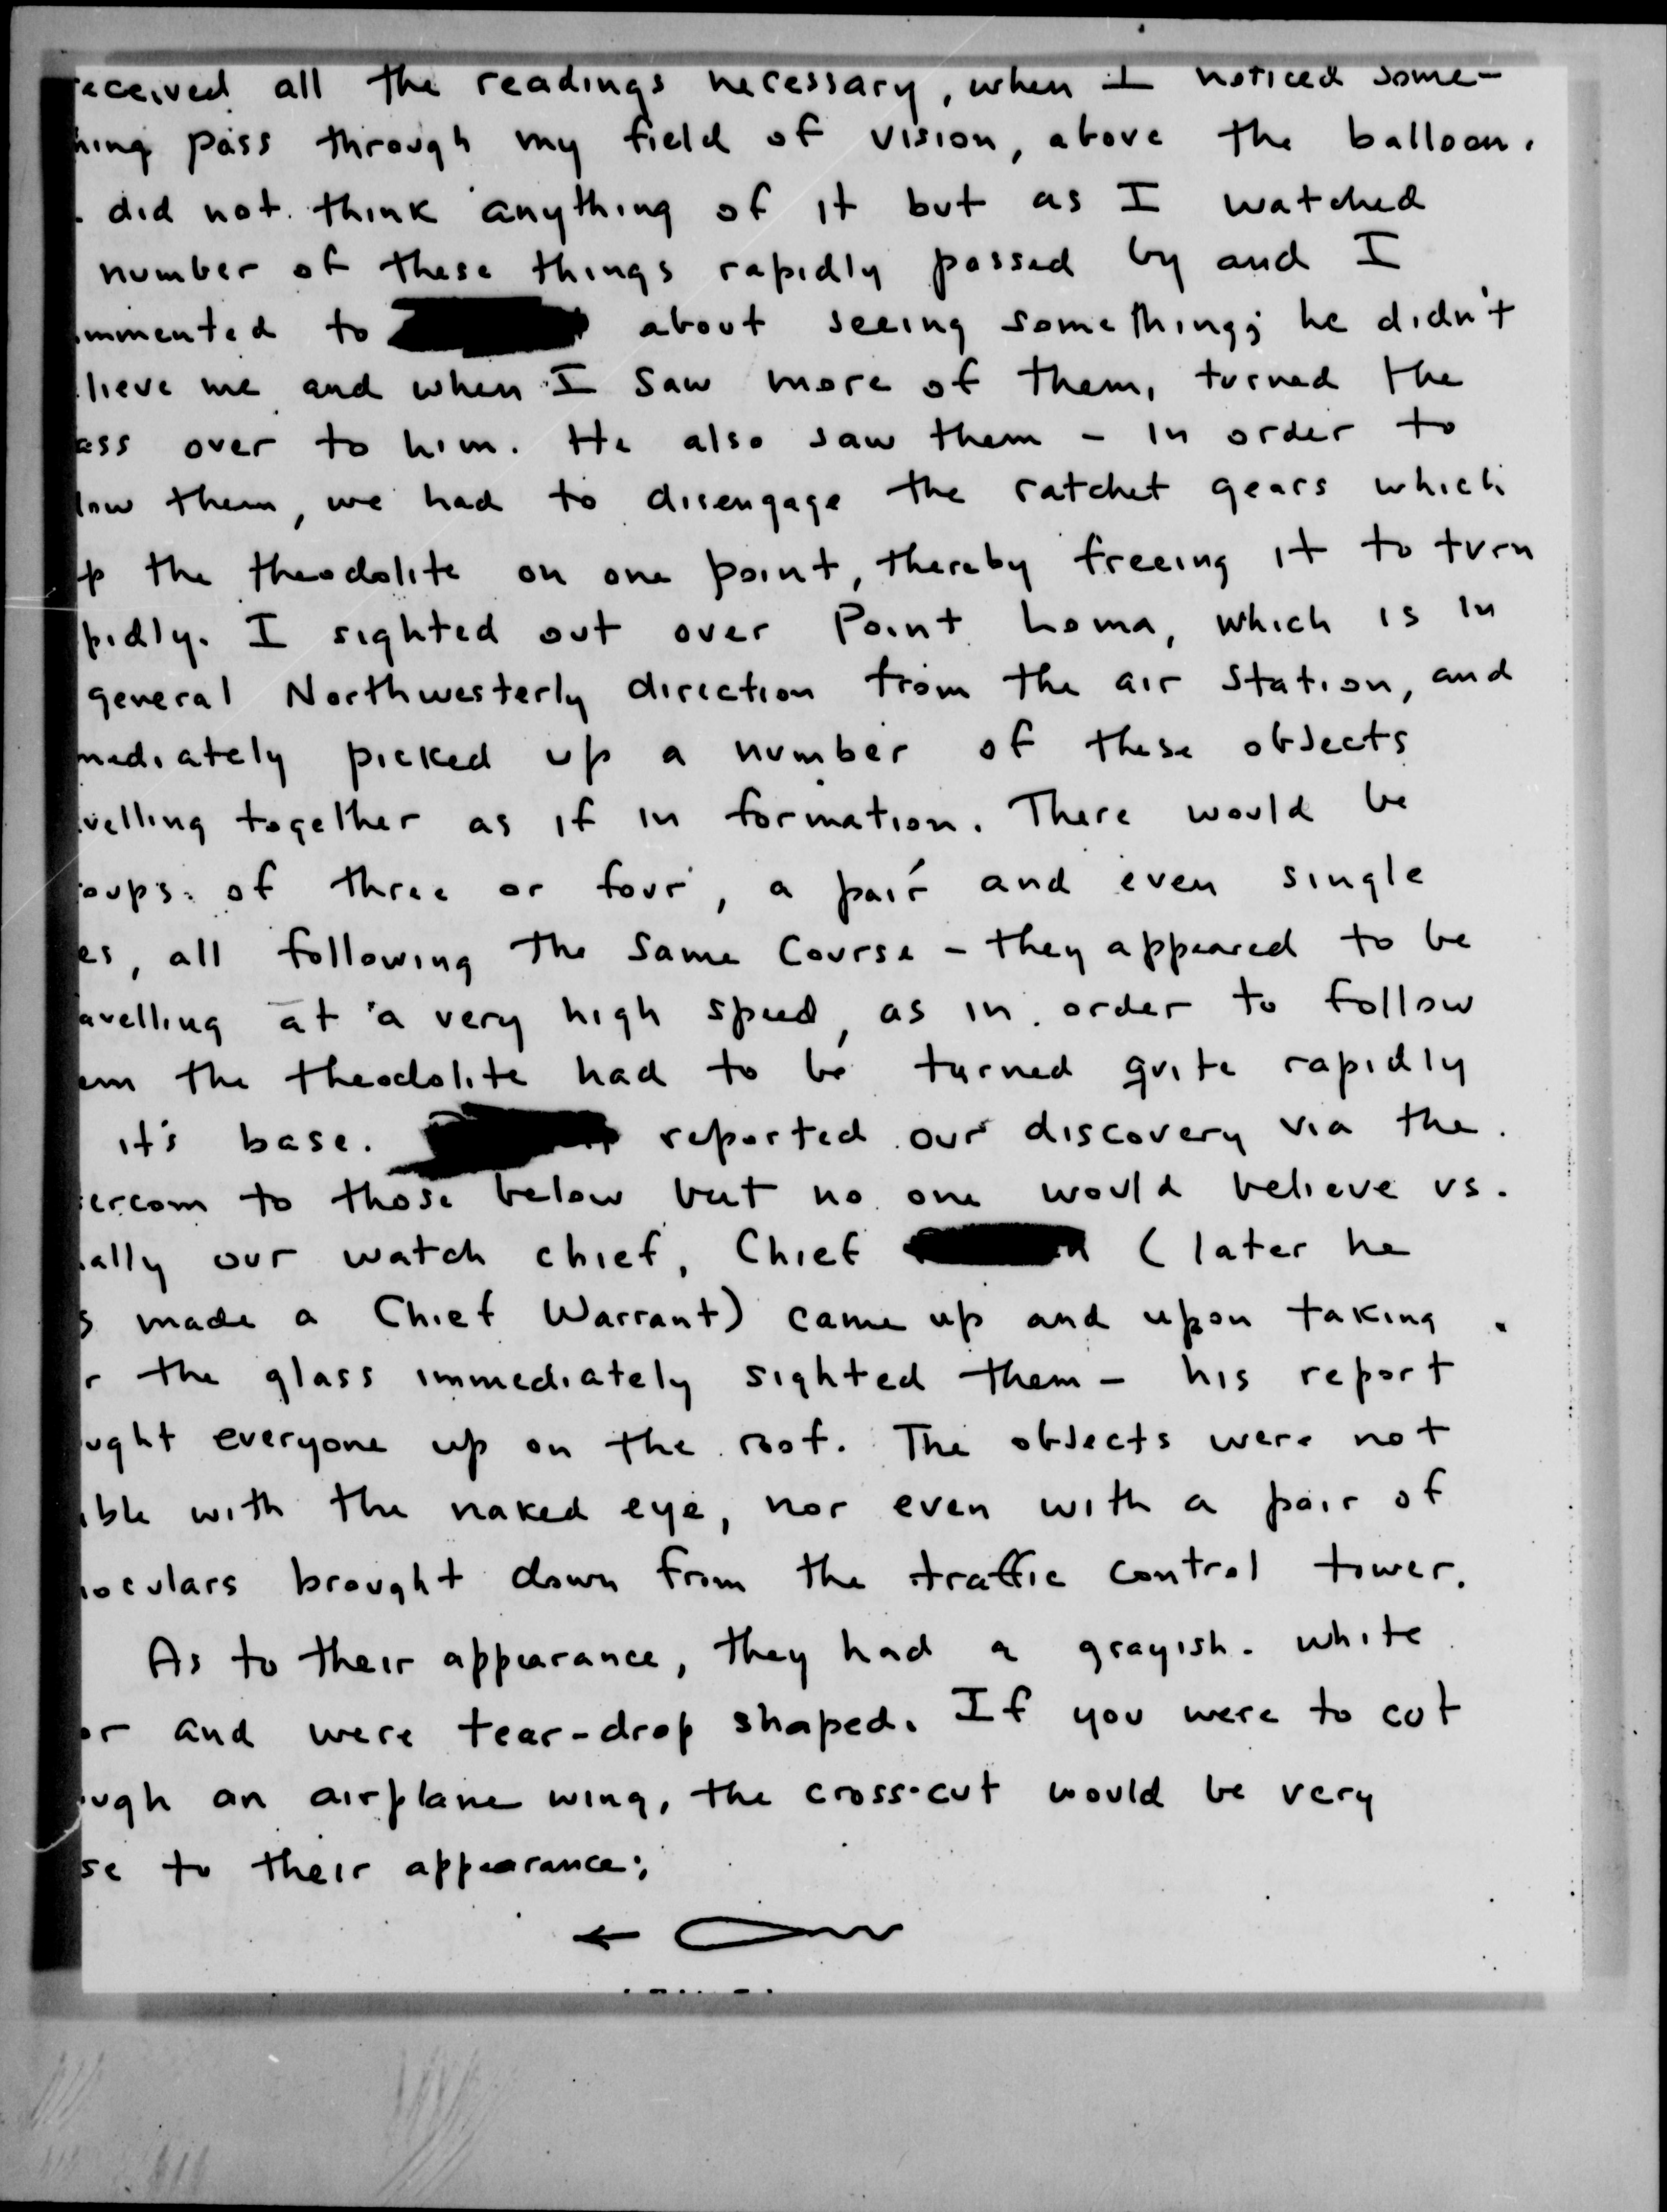 eceived all the readings necessary, when I noticed some-
hing pass through my field of vision, above the balloon.
did not think anything of it but as I watched
number of these things rapidly passed by and I
mmented to about seeing something; he didn't
lieve me and when I saw more of them, turned the
ass over to him. He also saw them - in order to
low them, we had to disengage the ratchet gears which
p the theodolite on one point, thereby freeing it to turn
pidly. I sighted out over Point Loma, which is in
general Northwesterly direction from the air station, and
mediately picked up a number of these objects
velling together as if in formation. There would be
oups of three or four, a pair and even single
es, all following the same course - they appeared to be
avelling at a very high speed, as in order to follow
em the theodolite had to be turned quite rapidly
it's base. reported our discovery via the
ercom to those below but no one would believe us.
ally our watch chief, Chief (later he
s made a Chief Warrant) came up and upon taking
r the glass immediately sighted them - his report
ught everyone up on the roof. The objects were not
ible with the naked eye, nor even with a pair of
noculars brought down from the traffic control tower.
As to their appearance, they had a grayish-white
or and were tear-drop shaped. If you were to cut
ough an airplane wing, the cross-cut would be very
se to their appearance;